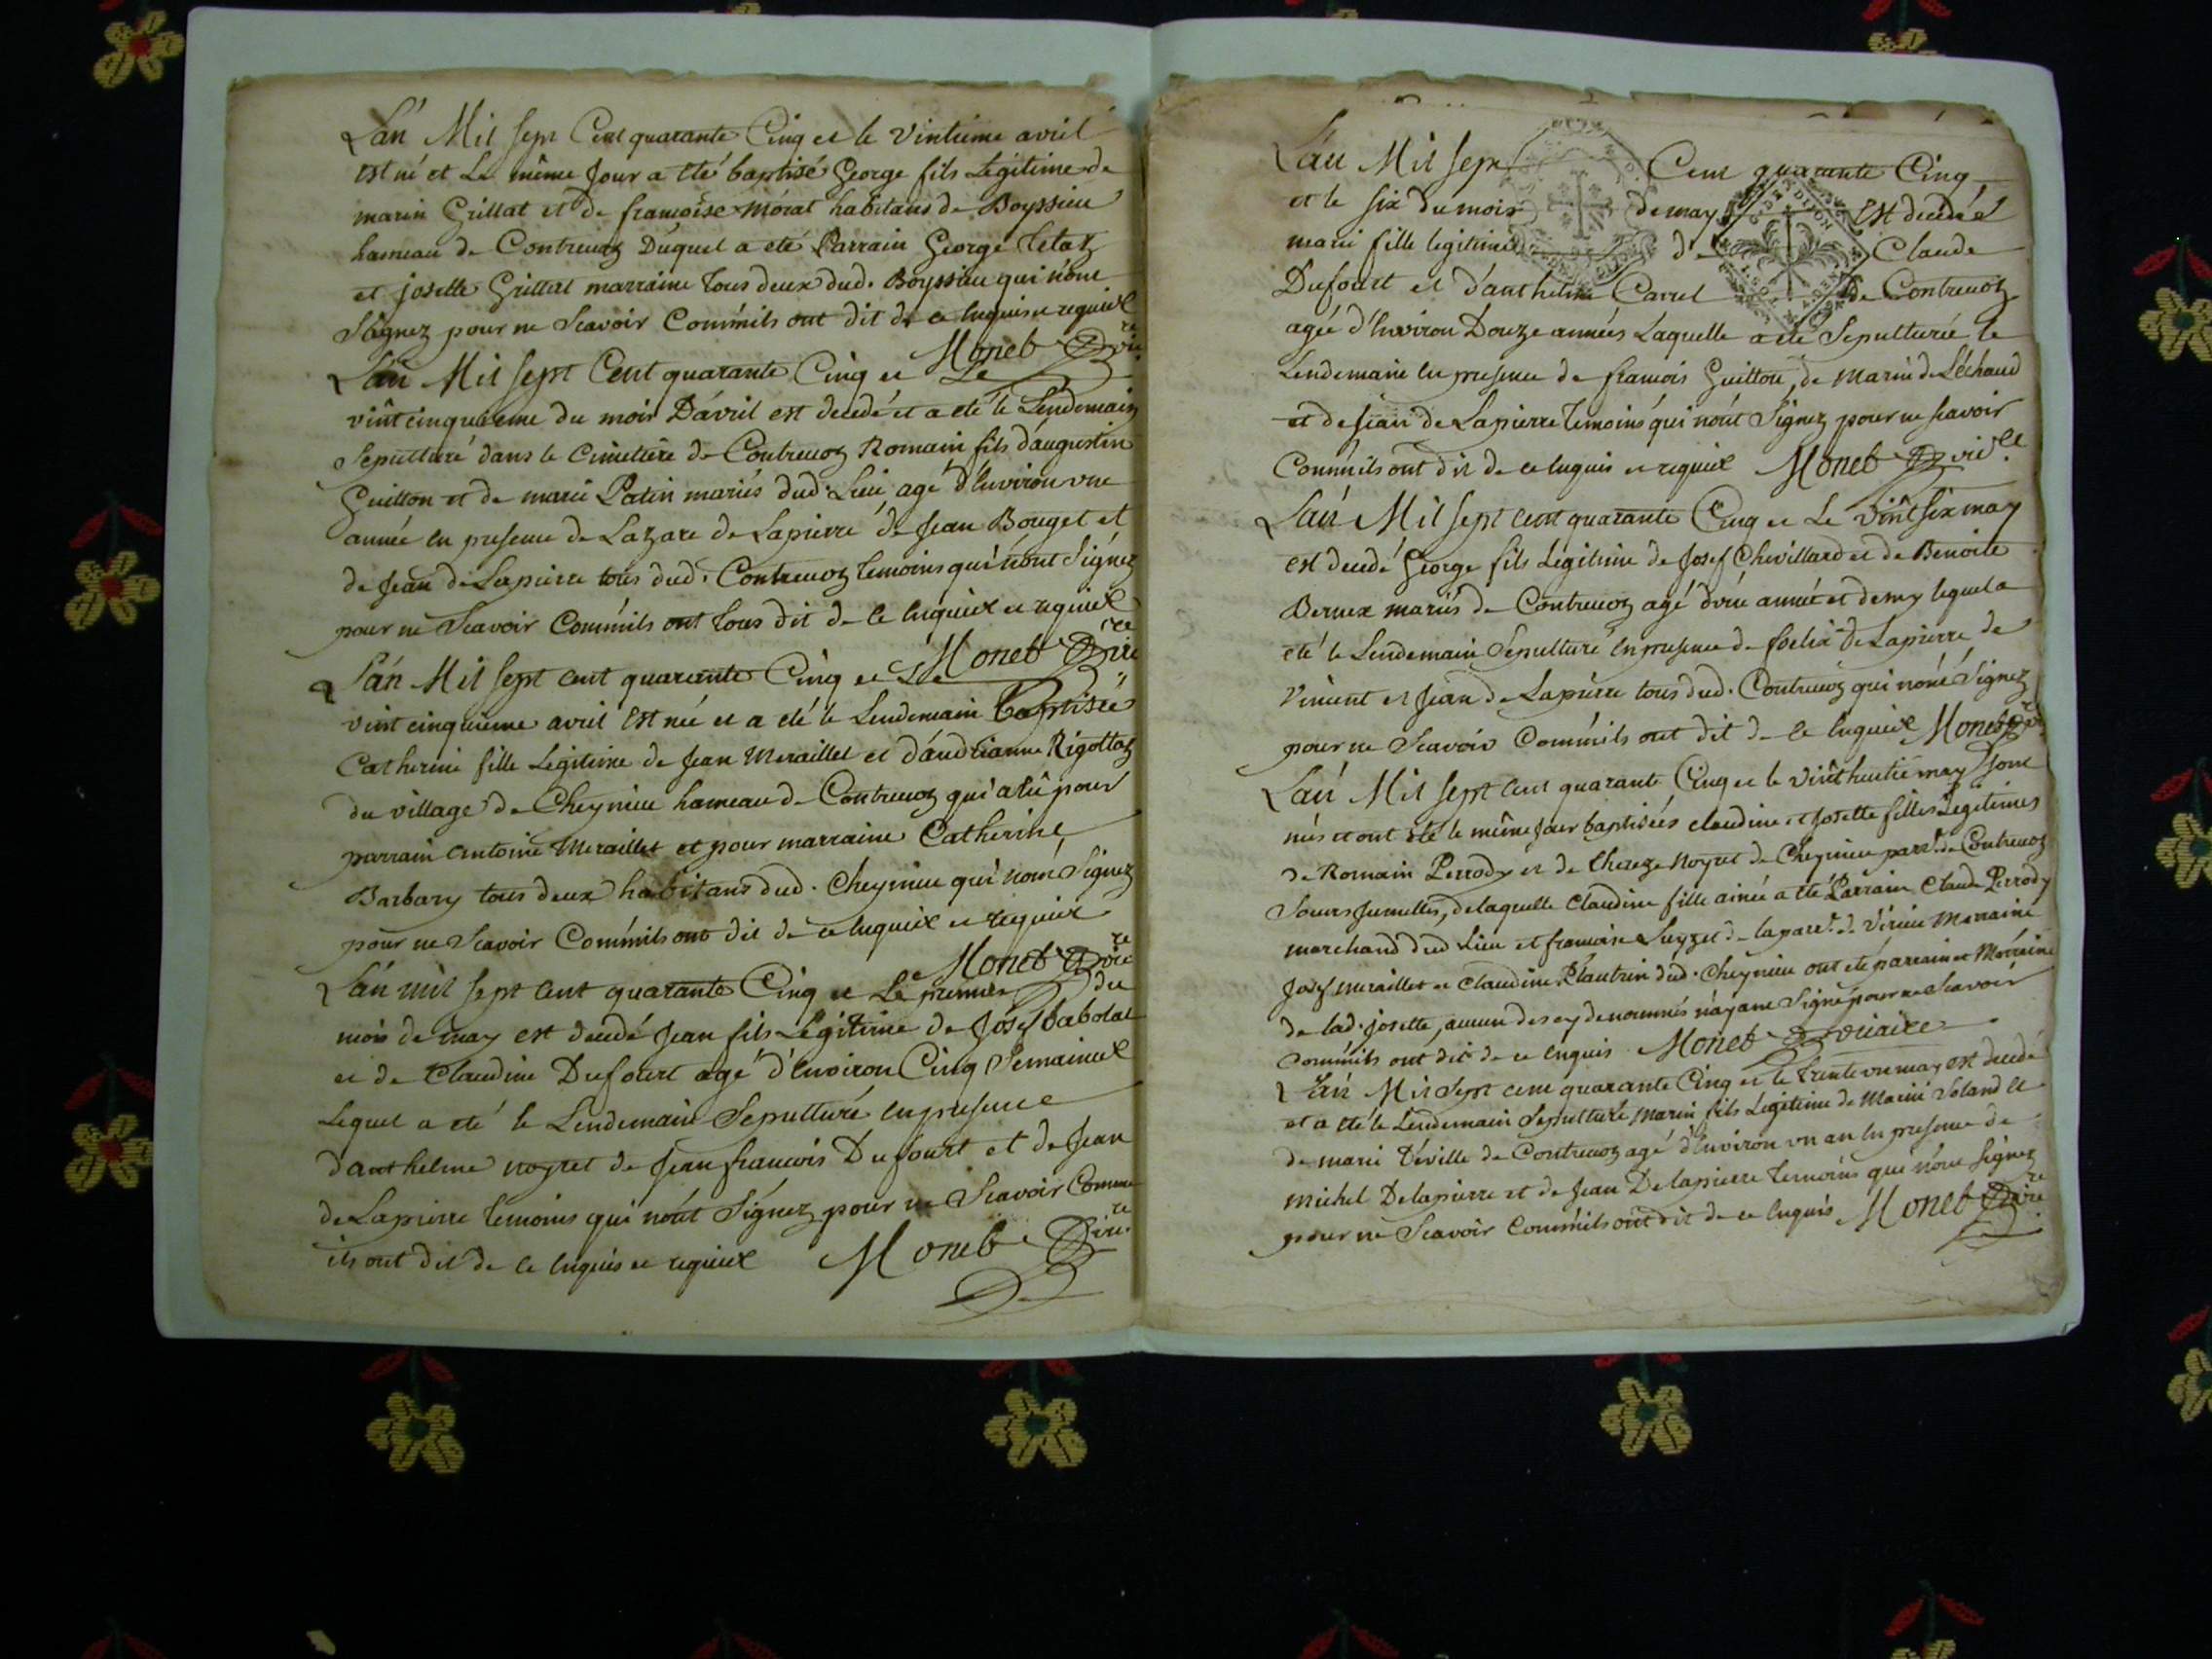 L'an Mil sept Cent quarante Cinq et le vintieme avril
est né et Le même Jour a eté baptisé George fils Legitime de
marin Grillat et de francoise Morat habitans de Boyssieu
hameau de Contrevoz Duquel a eté Parrain George tetaz
et josette Grillat marraine tous deux dud. Boyssieu qui n'ont
Signez pour ne Scavoir Comm'ils ont dit de ce enquis et requiex
Monet vire
L'an Mil sept Cent quarante Cinq et Le
vint cinquieme du mois D'avril est decedé et a eté le Lendemain
Sepulturé dans le Cimetiere de Contrevoz Romain fils d'augustin
Guitton et de marie Patin mariés dud. Lieu agé d'Environ vne
année en presence de Lazare de Lapierre de Jean Bouget et
de Jean de Lapierre tous dud. Contrevoz temoins qui n'ont Signez
pour ne Scavoir Comm'ils ont tous dit de ce enquiex et requiex
Monet vire
L'an Mil sept cent quarante Cinq et Le
vint cinquieme avril est née et a eté le Lendemain Baptisée
Catherine fille Legitime de Jean Meraillet et d'andrianne Rigottaz
du village de Cheynieu hameau de Contrevoz qui a eû pour
parrain antoine Meraillet et pour marraine Catherine
Barbary tous deux habitans dud. Cheynieu qui n'ont Signez
pour ne Scavoir Comm'ils ont dit de ce enquiex et requiex
Monet vire
L'an mil sept cent quarante Cinq et Le premier du
mois de may est decedé Jean fils Legitime de Josef babolat
et de Claudine Dufourt agé d'Environ Cinq Semainex
Lequel a eté le Lendemain Sepulturé en presence
d'anthelme noyret de Jean francois Dufourt et de Jean
de Lapierre temoins qui n'ont Signez pour ne Scavoir Comme
ils ont dit de ce enquis et requiex Monet vire
L'an Mil sept Cent quarante Cinq
et le six du mois de may est decedée
marie fille legitime de Claude
Dufourt et d'anthelme Carrel de Contrevoz
agée d'Environ Douze années Laquelle a eté Sepulturée le
Lendemain en presence de francois Guitton, de Marin de Léchaud
et de Jean de Lapierre temoins qui n'ont Signez pour ne scavoir
Comm'ils ont dit de ce enquis et requiex Monet vire
L'an Mil sept cent quarante Cinq et Le vint six may
est decedé George fils Legitime de Josef Chevillard et de Benoite
Bernex mariés de Contrevoz agé d'vne année et demy lequel a
eté le Lendemain Sepulturé en presence de foelix de Lapierre de
Vincent et Jean de Lapierre tous dud. Contrevoz qui n'ont Signez
pour ne Scavoir Comm'ils ont dit de ce enquiex Monet
L'an Mil sept cent quarante Cinq et le vint huitie may sont
nées et ont eté le même Jour baptisées claudine et Josette filles Legitimes
de Romain Perrody et de thereze Noyret de Cheynieu parr. de Contrevoz
Soeurs Jumelles, de laquelle Claudine fille ainée a eté Parrain Claude Perrody
marchand dud Lieu et francoise Suyzet de la parr. de Virieu Marraine
Josef meraillet et Claudine Plautrin dud. Cheynieu ont eté parrain et Marraine
de lad. josette, aucun des cy denommés n'ayant Signé pour ne Scavoir
Comm'ils ont dit de ce enquis Monet vicaire
L'an Mil sept cent quarante Cinq et le trente vn may est decedé
et a eté le Lendemain Sepulturé marin fils Legitime de Marin Soland et
de marie Déville de Contrevoz agé d'Environ vn an en presence de
michel Delapierre et de Jean Delapierre temoins qui n'ont Signez
pour ne Scavoir Comm'ils ont dit de ce enquis Monet vire